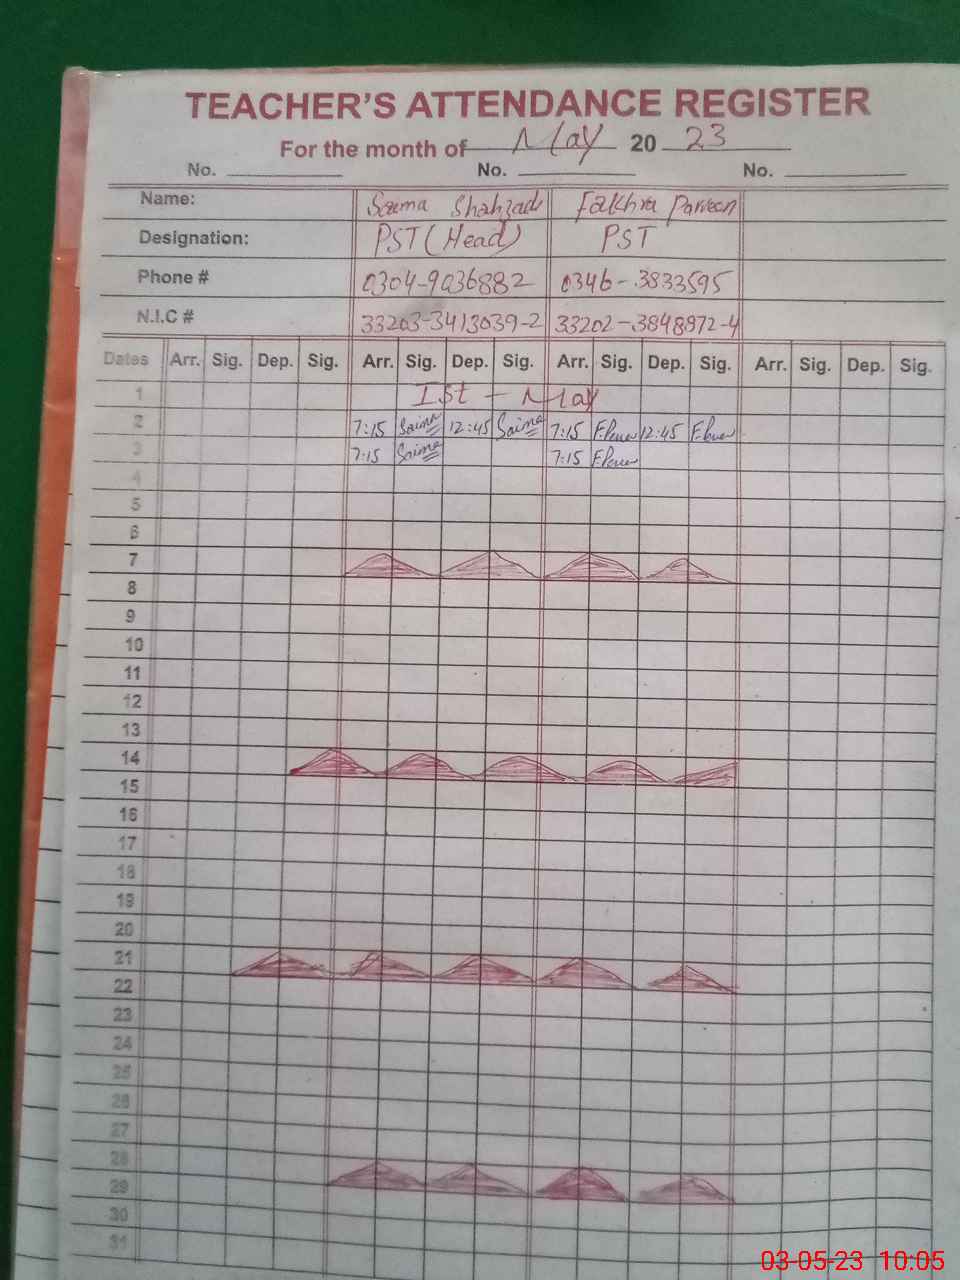 TEACHER'S ATTENDANCE REGISTER
For the month of May 20 23
No. No. No.
Name: Saima Shahzadi Fakhra Parveen
Designation: PST (Head) PST
Phone # 0304-9036882 0346-3833595
N.I.C # 33203-3413039-2 33202-3848972-4
Dates Arr. Sig. Dep. Sig. Arr. Sig. Dep. Sig. Arr. Sig. Dep. Sig. Arr. Sig. Dep. Sig.
1 Ist - May
2 7:15 Saima 12:45 Saima 7:15 12:45
3 7:15 Saima 7:15
4
5
6
7
8
9
10
11
12
13
14
15
16
17
18
19
20
21
22
23
24
25
26
27
28
29
30
31
03-05-23 10:05